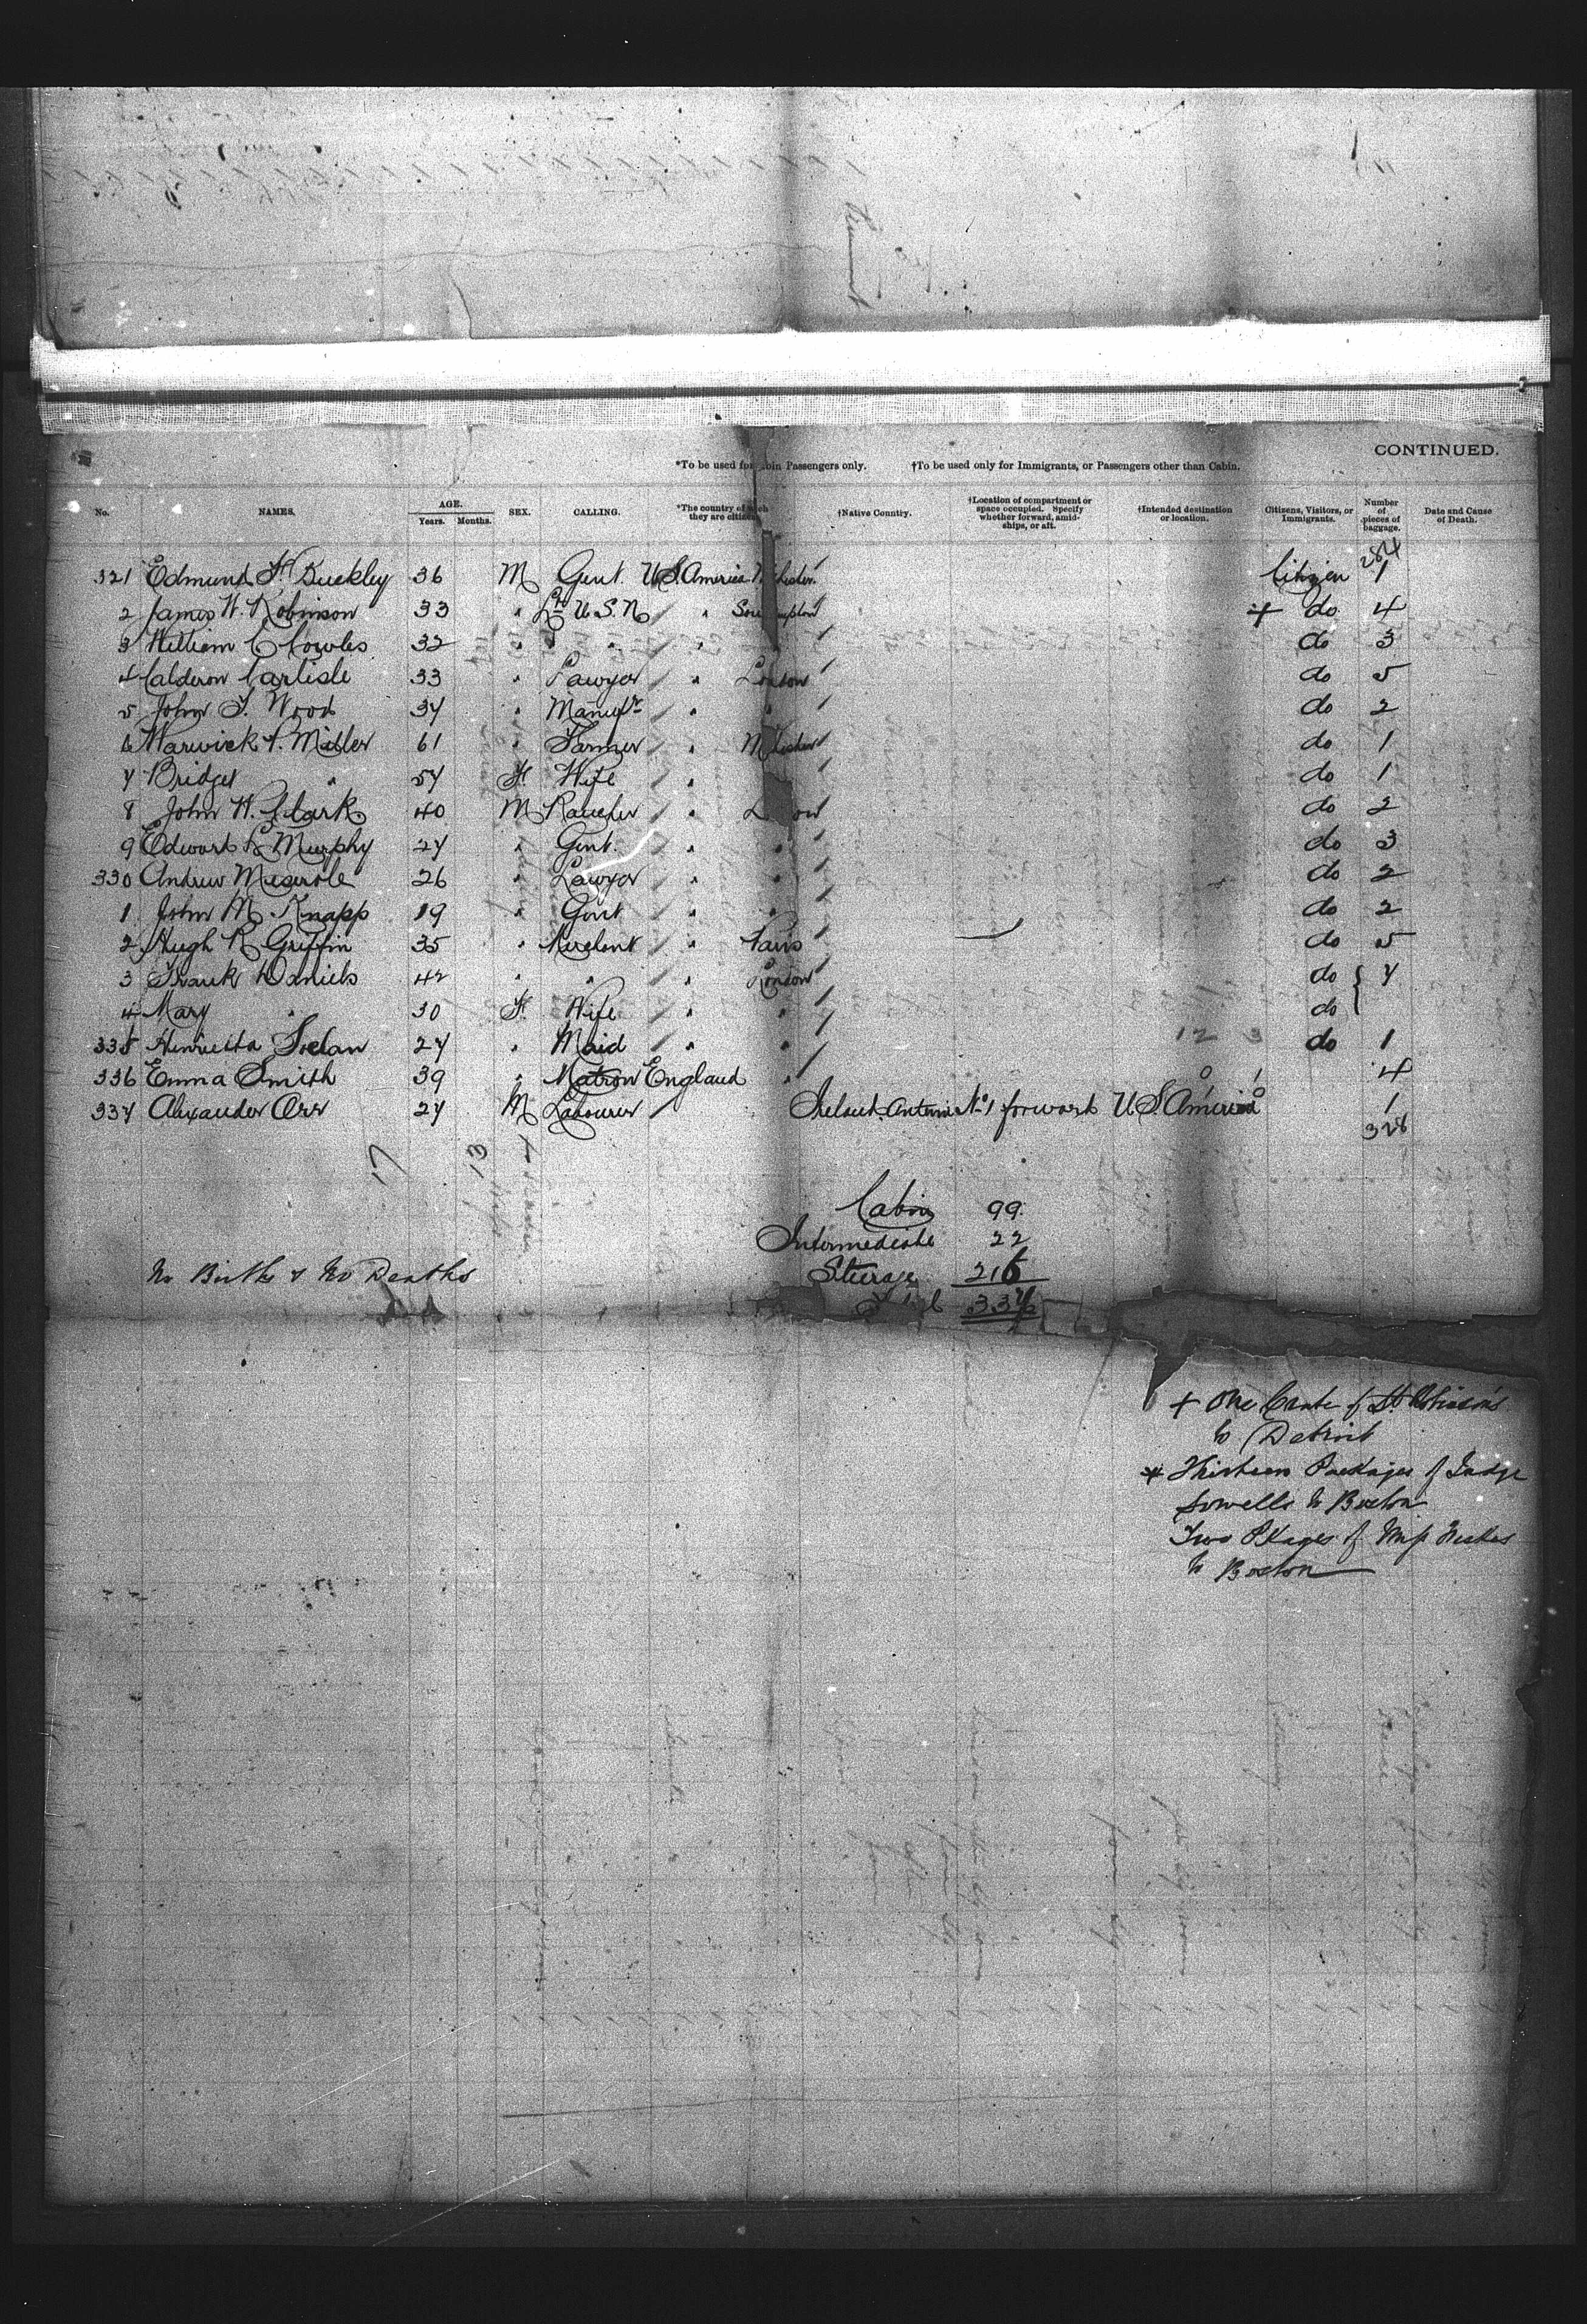 CONTINUED.
*To be used for Cabin Passengers only. †To be used only for Immigrants, or Passengers other than Cabin.
No. NAMES. AGE. Years. Months. SEX. CALLING. *The country of which they are citizens. †Native Country. †Location of compartment or space occupied. Specify whether forward, amidships, or aft. †Intended destination or location. Citizens, Visitors, or Immigrants. Number of pieces of baggage. Date and Cause of Death.
284
321 Edmund F. Buckley 36 M Gent. U S America Citizen 1
2 James W. Robinson 33 " Lt U.S.N " + do 4
3 William C Cowles 32 " " " " do 3
4 Calderon Carlisle 33 " Lawyer " London do 5
5 John S. Wood 34 " Manufr " " do 2
6 Warwick Miller 61 " Farmer " do 1
7 Bridget " 57 F. Wife " do 1
8 John W. Clark 40 M Rancher " do 2
9 Edward Murphy 27 " Gent. " " do 3
330 Andrew Meserole 26 " Lawyer " " do 2
1 John M Knapp 19 " Gent " " do 2
2 Hugh R Griffin 35 " Merchant " Paris do 5
3 Frank Daniels 42 " " " London do } 7
4 Mary " 30 F. Wife " " do
335 Henrietta 27 " Maid " " 12 3 do 1
336 Emma Smith 39 " Matron England " 0 1 4
337 Alexander Orr 27 M Labourer Ireland Antrim No 1 forward U.S. America 1
328
17 13
Cabin 99
Intermediate 22
No Births & No Deaths Steerage 216
337
+ One Crate of Lt Robinson's
to Detroit
* Thirteen Packages of Judge
Lowells to Boston
Two Pkages of Miss
to Boston